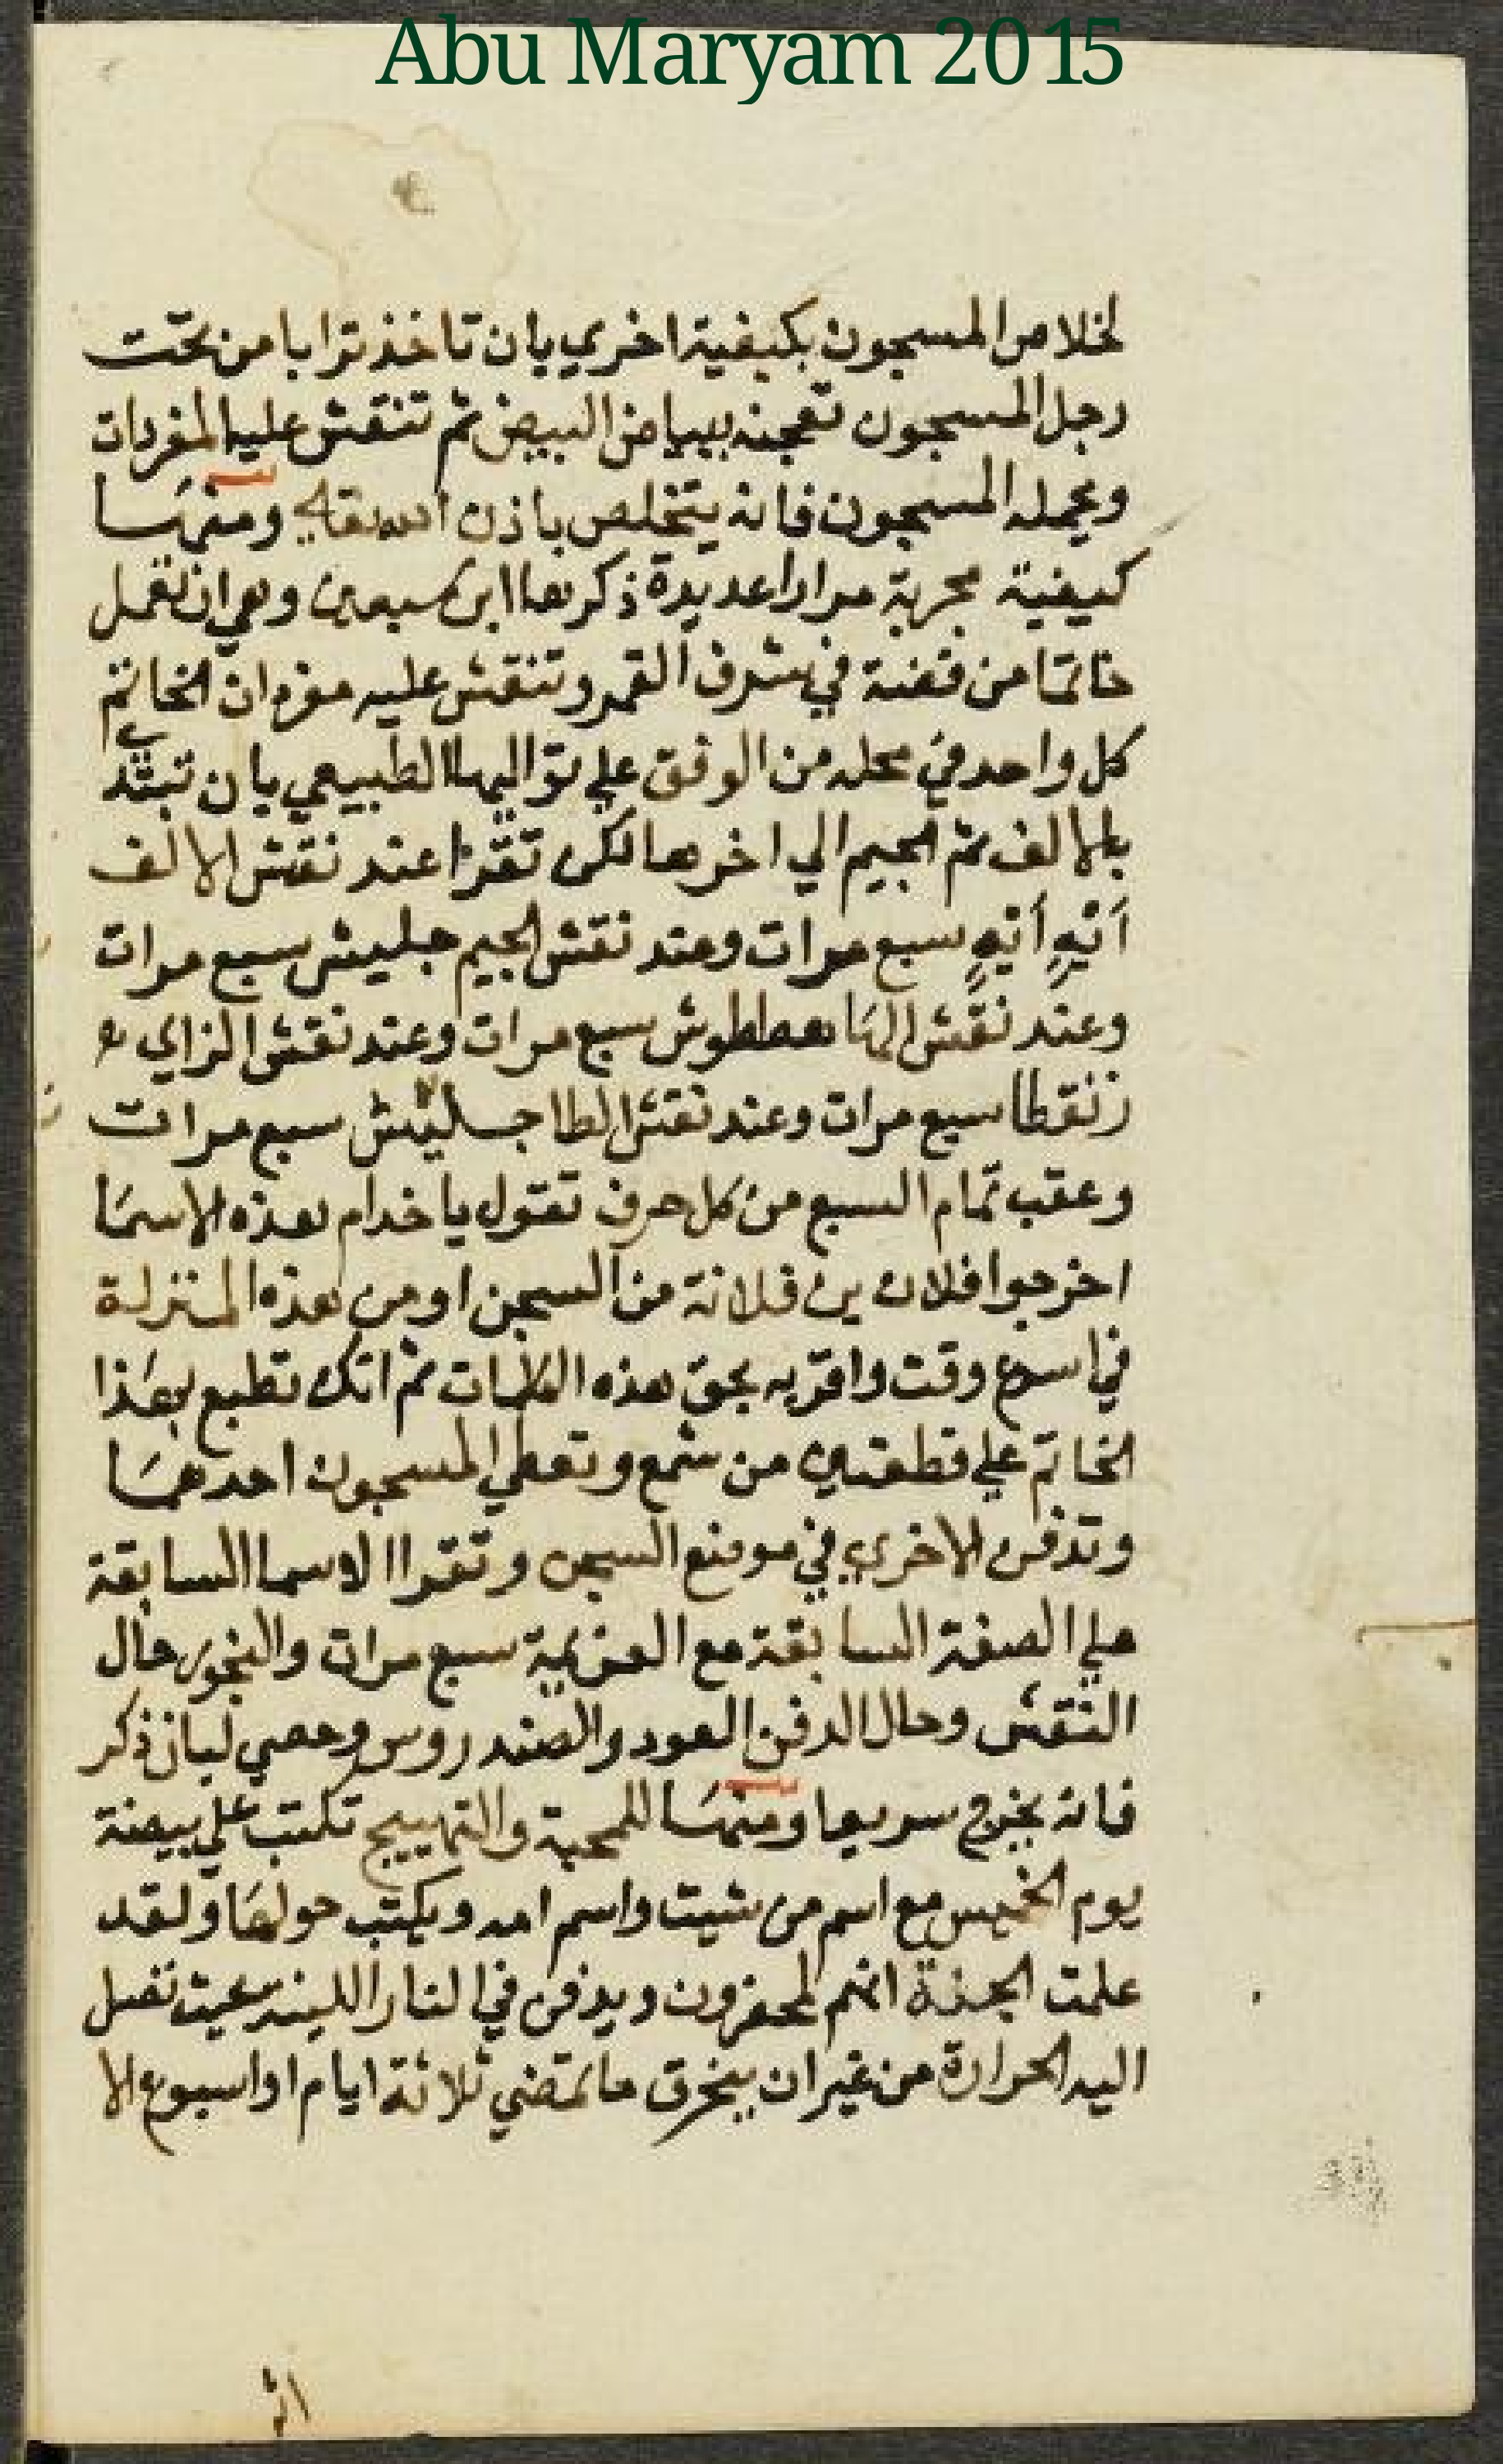 Abu Maryam 2015
لخلاص المسجون بكيفية اخري بان تاخذ ترابا من تحت
رجل المسجون تعجنه ببياض البيض ثم تنقش عليها المفردات
ويحمله المسجون فانه يتخلص باذن الله تعالي ومنها
كيفية مجربة مرارا عديدة ذكرها ابن سبعين وهي ان تعمل
خاتما من فضة في شرف القمر وتنقش عليه مفردات الخاتم
كل واحد في محله من الوفق علي تواليها الطبيعي بان تبتدي
بالالف ثم الجيم الي اخرها لكن تقرا عند نقش الالف
أَنْيِهٍ أَنْيِهٍ سبع مرات وعند نقش الجيم جليش سبع مرات
وعند نقش الها هططوش سبع مرات وعند نقش الزاي
زنقطا سبع مرات وعند نقش الطا جسليش سبع مرات
وعقب تمام السبع من كل حرف تقول يا خدام هذه الاسما
اخرجوا فلان بن فلانة من السجن او من هذه المنزلة
في اسرع وقت واقربه بحق هذه الكلمات ثم انك تطبع بهذا
الخاتم علي قطعتين من شمع وتعطي المسجون احدهما
وتدفن الاخري في موضع السجن وتقرا الاسما السابقة
علي الصفة السابقة مع العزيمة سبع مرات والبخور حال
النقش وحال الدفن العود والصندروس وحصي لبان ذكر
فانه يخرج سريعا ومنها للمحبة والتهييج تكتب علي بيضة
يوم الخميس مع اسم من شيت واسم امه ويكتب حولها ولقد
علمت الجنة انهم لمحضرون ويدفن في النار اللينه بحيث تصل
اليه الحرارة من غير ان يحرق ما تمضي ثلاثة ايام او اسبوع الا